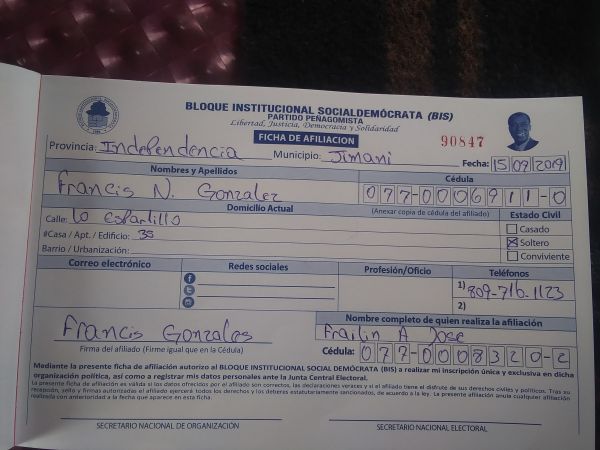 BLOQUE INSTITUCIONAL SOCIALDEMÓCRATA (BIS)
PARTIDO PEÑAGOMISTA
Libertad, Justicia, Democracia y Solidaridad
FICHA DE AFILIACION
90847
Provincia: Independencia Municipio: Jimani Fecha: 15 09 2019
Nombres y Apellidos Cédula
Francis N. Gonzalez 077-0006911-0
Domicilio Actual (Anexar copia de cédula del afiliado) Estado Civil
Calle: Lo Espartillo Casado
#Casa / Apt. / Edificio: 35 Soltero
Barrio / Urbanización: Conviviente
Correo electrónico Redes sociales Profesión/Oficio Teléfonos
1) 809-716-1123
2)
Nombre completo de quien realiza la afiliación
Francis Gonzales Frailin A Jose
Firma del afiliado (Firme igual que en la Cédula) Cédula: 077-0008320-2
Mediante la presente ficha de afiliación autorizo al BLOQUE INSTITUCIONAL SOCIAL DEMÓCRATA (BIS) a realizar mi inscripción única y exclusiva en dicha
organización política, así como a registrar mis datos personales ante la Junta Central Electoral.
La presente ficha de afiliación es válida si los datos ofrecidos por el afiliado son correctos, las declaraciones veraces y si el afiliado tiene el disfrute de sus derechos civiles y políticos. Tras su
recepción, sello y firmas autorizadas el afiliado ejercerá todos los derechos y los deberes estatutariamente sancionados, de acuerdo a la ley. La presente afiliación anula cualquier afiliación
realizada con anterioridad a la fecha que aparece en esta ficha.
SECRETARIO NACIONAL DE ORGANIZACIÓN SECRETARIO NACIONAL ELECTORAL